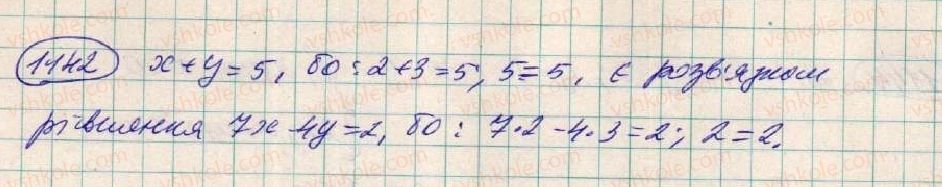 1142 x + y = 5, бо: 2 + 3 = 5; 5 = 5, є розв'язком
рівняння 7x - 4y = 2, бо: 7 · 2 - 4 · 3 = 2; 2 = 2.